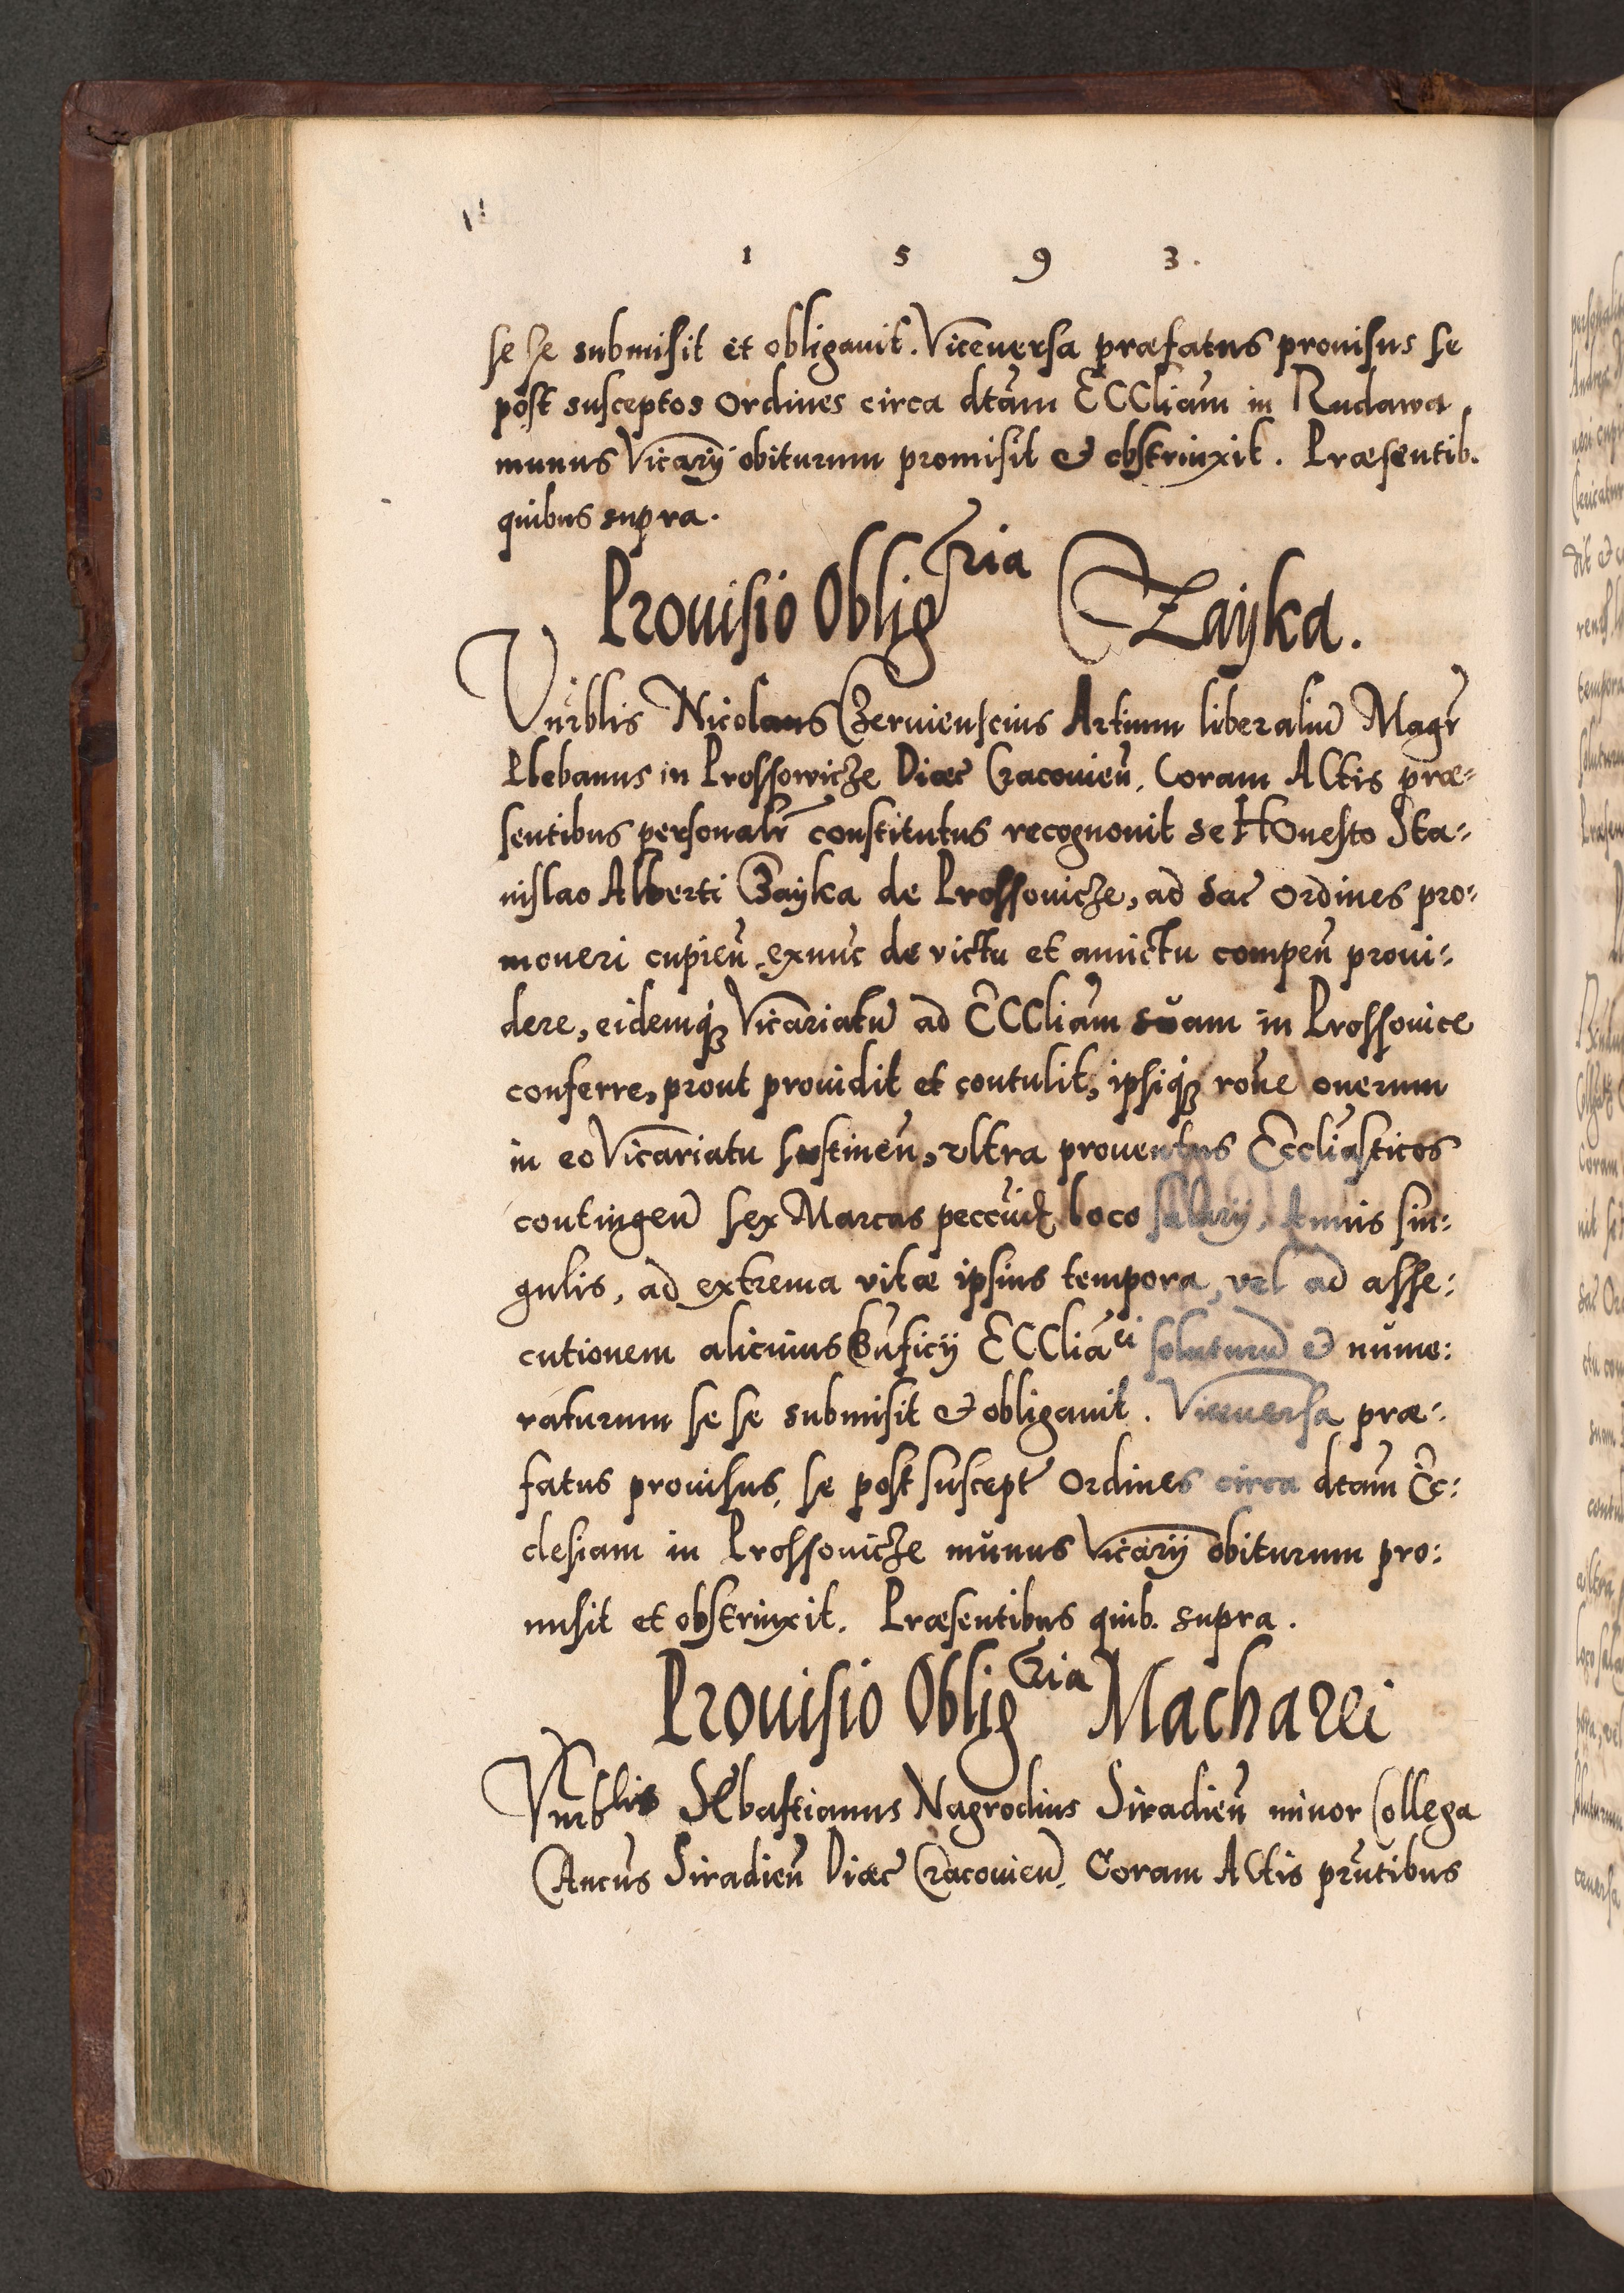 1 5 9 3.
se se submisit et obligauit. Viceuersa præfatus prouisus se
post susceptos Ordines circa dtam ECCliam in Rudawa
munus Vicarij obiturum promisit & obstrinxit. Præsentib.
quibus supra.
Prouisio Obligria Zayka.
Vnrblis Nicolaus Czerwienscius Artium liberaliu Magr
Plebanus in Prossowicze Diæc Cracouien. Coram ACtis præ-
sentibus personalr constitutus recognouit se HOnesto Sta-
nislao Alberti Zayka de Prossouicze, ad sac Ordines pro-
moueri cupien exnuc de victu et amictu compen proui-
dere, eidemq Vicariatu ad ECCliam suam in Prossouice
conferre, prout prouidit et contulit, ipsiq rone onerum
in eo Vicariatu sustinen, vltra prouentus Eccliasticos
contingen sex Marcas peccuiæ loco salarij, Annis sin-
gulis, ad extrema vitæ ipsius tempora, vel ad asse-
cutionem alicuius Bnficij ECCliaci soluturu & nume-
raturum se se submisit & obligauit. Viceuersa præ-
fatus prouisus, se post suscept Ordines circa dtam Ec-
clesiam in Prossouicze munus Vicarij obiturum pro-
misit et obstrinxit. Præsentibus quib. supra.
Prouisio Obligria Macharei
Vnrblis SEbastianus Nagrodius Siradien minor Collega
CAncus Siradien Diæc Cracouien. Coram ACtis prntibus